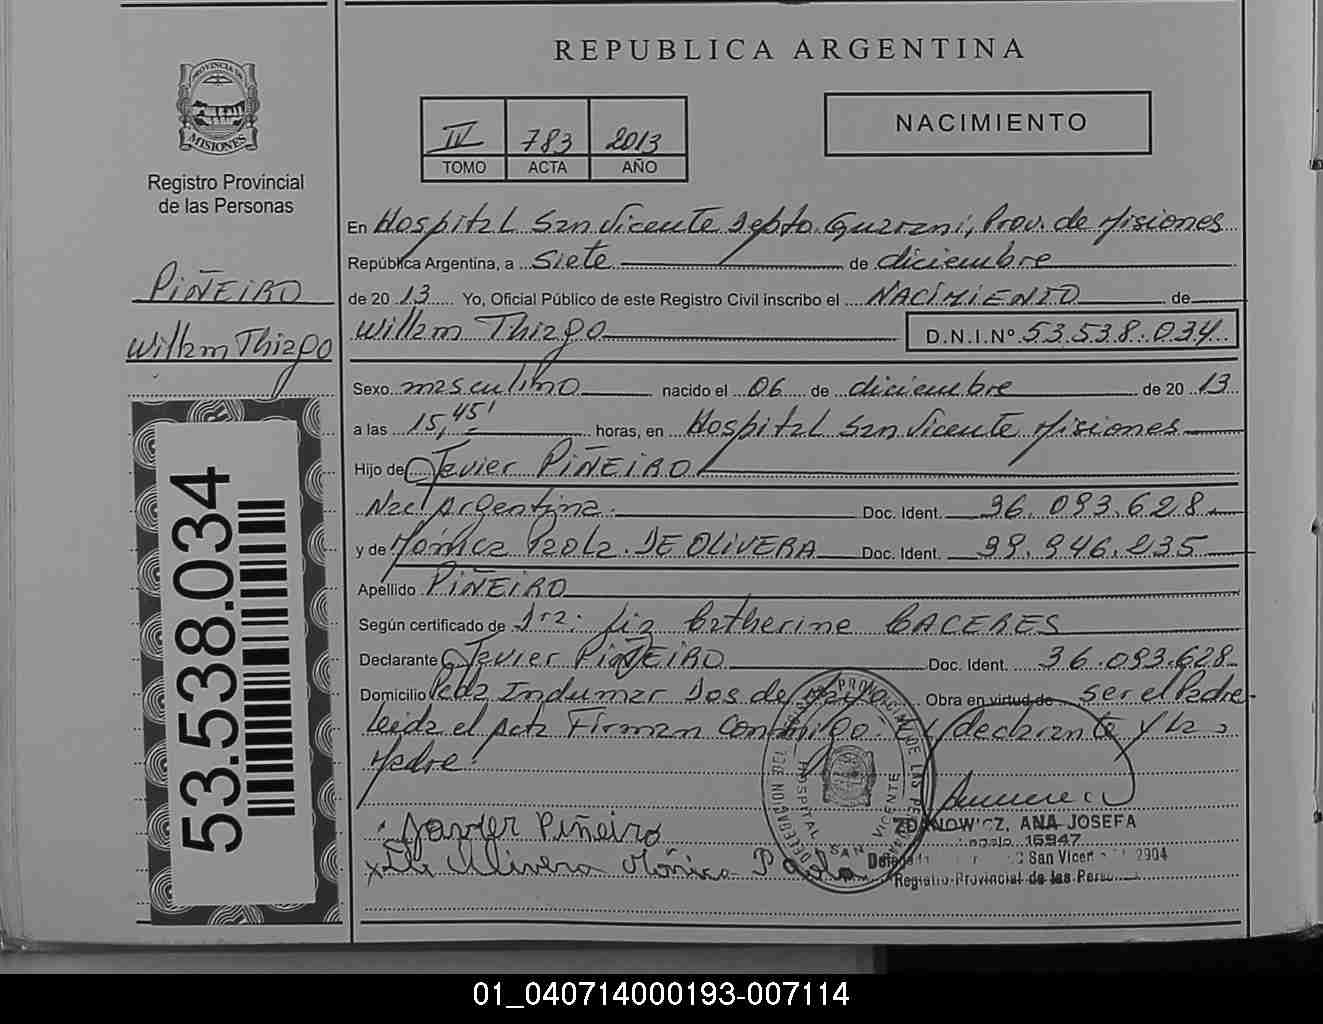 REPUBLICA ARGENTINA
PROVINCIA DE
MISIONES
Registro Provincial
de las Personas
IV 783 2013
TOMO ACTA AÑO
NACIMIENTO
PIÑEIRO
Willam Thiago
53.538.034
En Hospital San Vicente Depto. Guarani, Prov. de Misiones
República Argentina, a siete de diciembre
de 20 13 Yo, Oficial Público de este Registro Civil inscribo el NACIMIENTO de
Willam Thiago D.N.I.Nº 53.538.034
Sexo masculino nacido el 06 de diciembre de 20 13
a las 15,45' horas, en Hospital San Vicente Misiones
Hijo de Javier PIÑEIRO
Nac Argentina. Doc. Ident. 36.093.628
y de Mónica Paola DE OLIVERA Doc. Ident. 99.946.235
Apellido PIÑEIRO
Según certificado de Dra: Liz Catherine CACERES
Declarante Javier PIÑEIRO Doc. Ident. 36.093.628
Domicilio Indumar Dos de Mayo Obra en virtud de ser el Padre
Leida el Acta Firman Conmigo. declarante y La
Madre.
Javier Piñeiro
De Olivera Mónica Paola
HOSPITAL SAN VICENTE
ZDANOWICZ, ANA JOSEFA
Legajo 16947
San Vicente 2904
Registro Provincial de las Personas
01_040714000193-007114